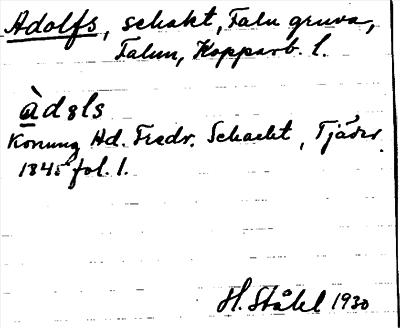 Adolfs, schakt, Falu gruva,
Falun, Kopparb. l.
àdǝls
Konung Ad. Fredr. Schacht, Tjäder
1845 fol. 1.
H. Ståhl 1930